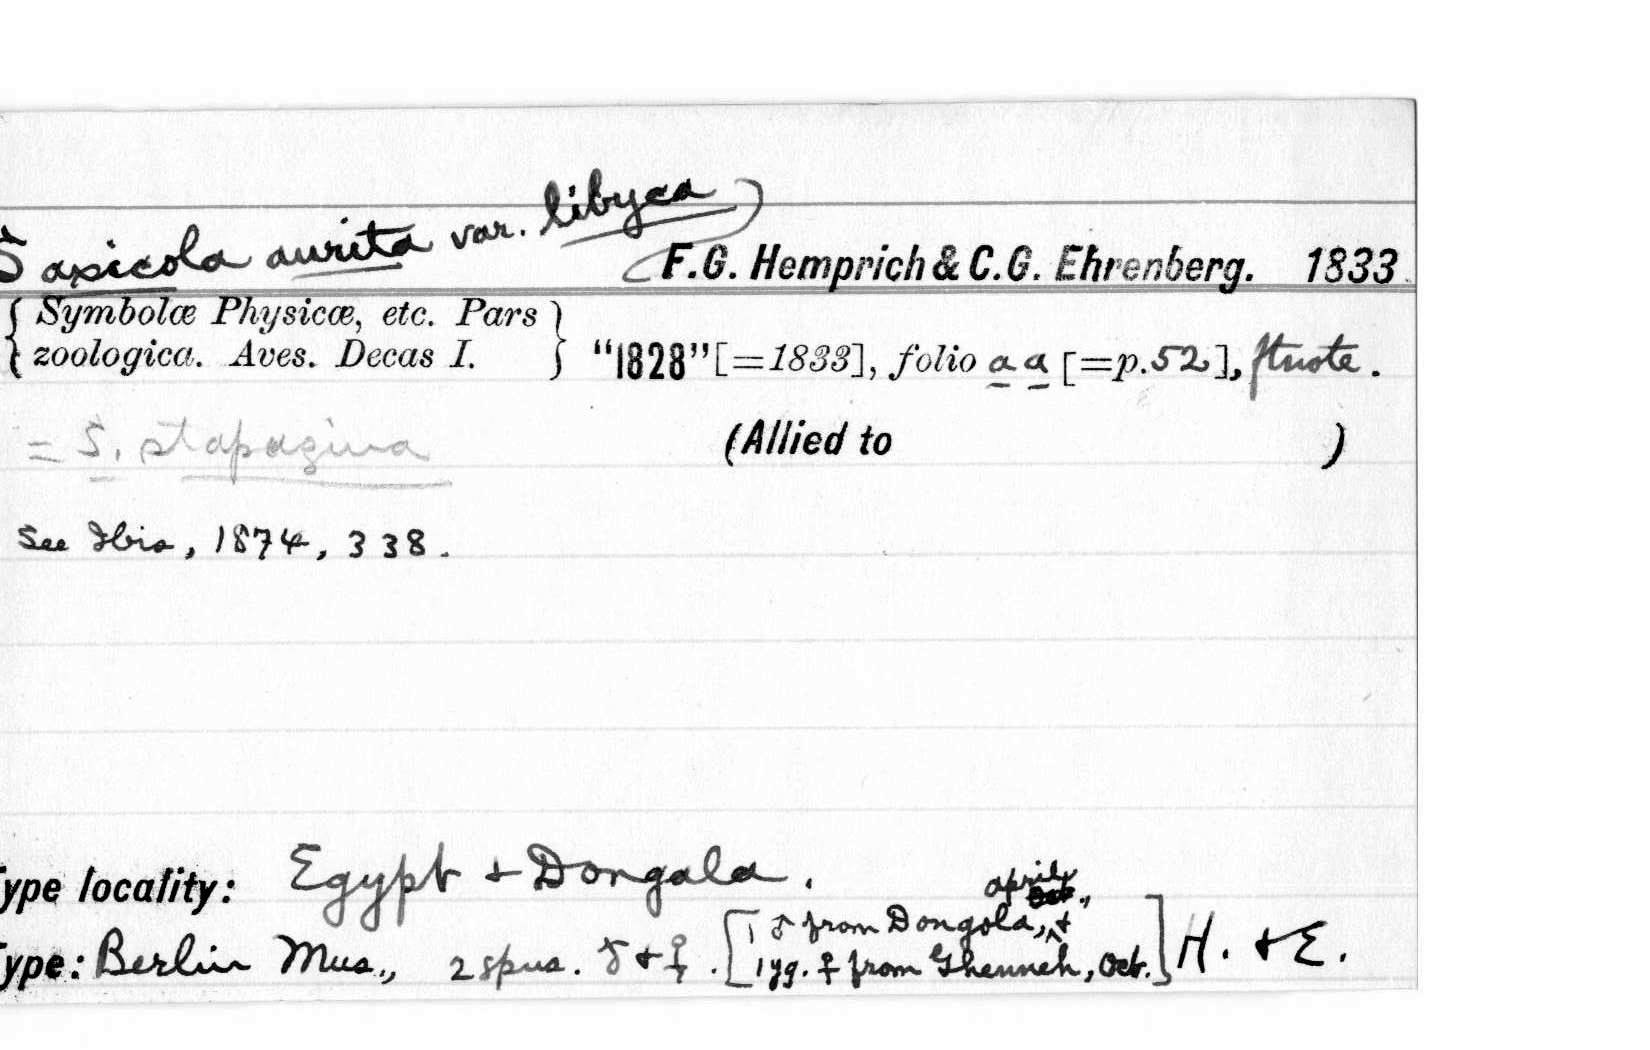 Saxicola aurita var. libyca)
(F.G. Hemprich & C.G. Ehrenberg. 1833
{ Symbolæ Physicæ, etc. Pars
zoologica. Aves. Decas I. } "1828" [=1833], folio a a [=p.52], ftnote.
= S. stapazina (Allied to )
See Ibis, 1874, 338.
ype locality: Egypt + Dongala.
april
Oct.,
ype: Berlin Mus., 2 spns. ♂ + ♀. [1 ♂ from Dongola, ^ +
1 yg. ♀ from Ghenneh, Oct.] H. + E.